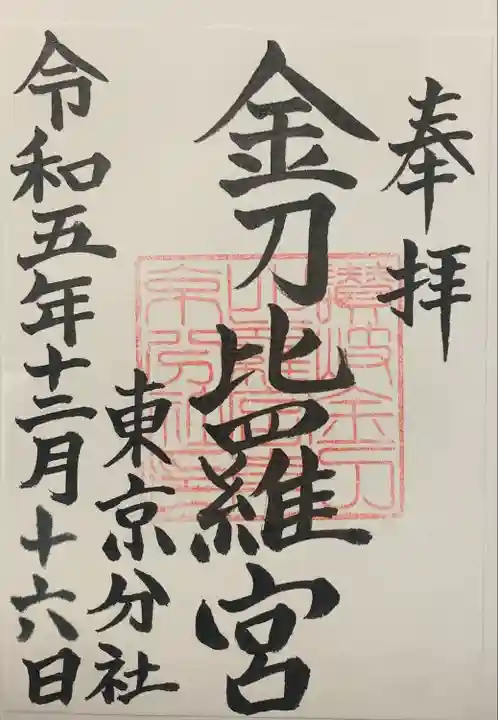 奉拝
金刀比羅宮
東京分社
令和五年十二月十六日